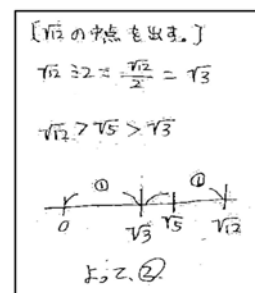 [√12 の中点を出す。]
√12 ÷ 2 = √12/2 = √3
√12 > √5 > √3
① ①
0 √3 √5 √12
よって、②